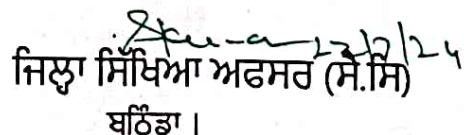 23/7/24
ਜਿਲ੍ਹਾ ਸਿੱਖਿਆ ਅਫਸਰ (ਸੈ.ਸਿ)
ਬਠਿੰਡਾ।